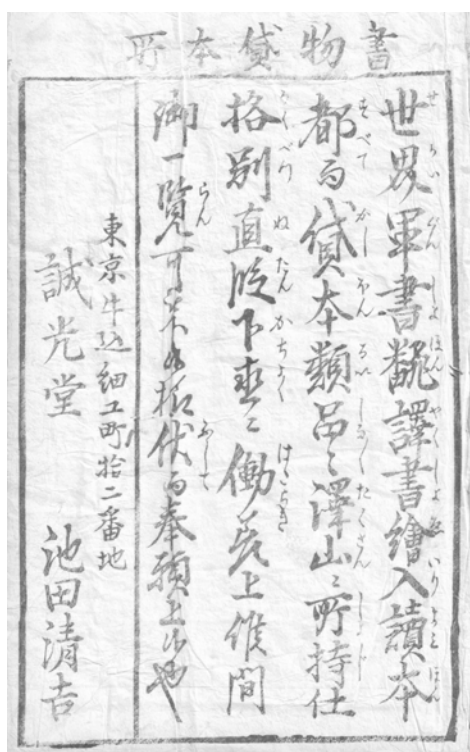 書物貸本所
世界軍書飜譯書繪入讀本
都而貸本類品々澤山ニ所持仕
格別直段下直ニ働差上候間
御一覧可伏而奉願上候也
東京牛込細工町拾二番地
誠光堂 池田清吉